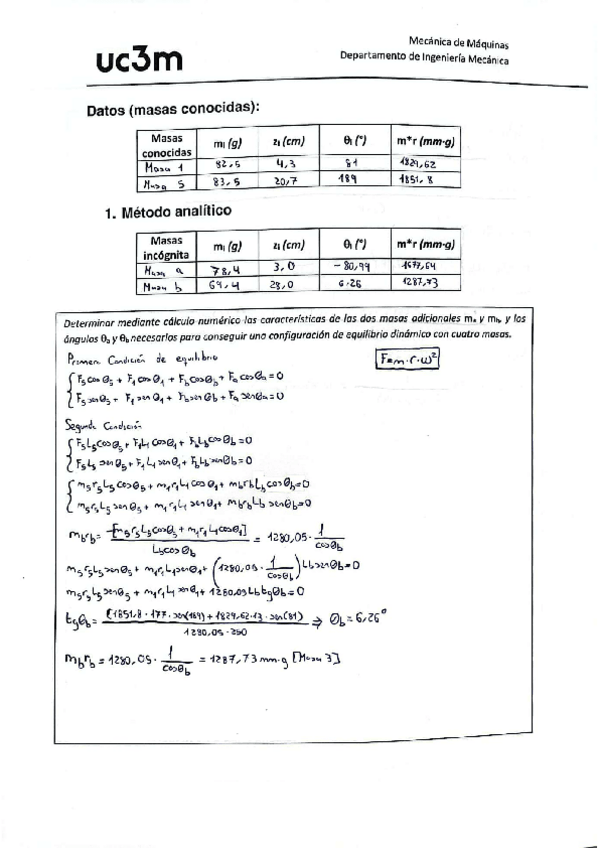 uc3m
Mecánica de Máquinas
Departamento de Ingeniería Mecánica
Datos (masas conocidas):
Masas conocidas mᵢ (g) zᵢ (cm) θᵢ (°) m*r (mm·g)
Masa 1 82,5 4,3 81 1829,62
Masa 5 83,5 20,7 189 1851,8
1. Método analítico
Masas incógnita mᵢ (g) zᵢ (cm) θᵢ (°) m*r (mm·g)
Masa a 78,4 3,0 -80,99 1677,64
Masa b 69,4 28,0 6.26 1287,73
Determinar mediante cálculo numérico las características de las dos masas adicionales mₐ y m_b, y los
ángulos θₐ y θ_b necesarios para conseguir una configuración de equilibrio dinámico con cuatro masas.
Primera Condición de equilibrio
F=m·r·ω²
F₅cosθ₅ + F₁cosθ₁ + F_bcosθ_b + Fₐcosθₐ = 0
F₅senθ₅ + F₁senθ₁ + F_bsenθb + Fₐsenθₐ = 0
Segunda Condición
F₅L₅cosθ₅ + F₁L₁cosθ₁ + F_bL_bcosθb = 0
F₅L₅senθ₅ + F₁L₁senθ₁ + F_bL_bsenθb = 0
m₅r₅L₅cosθ₅ + m₁r₁L₁cosθ₁ + m_br_bL_bcosθb = 0
m₅r₅L₅senθ₅ + m₁r₁L₁senθ₁ + m_br_bL_bsenθb = 0
m_br_b = -[m₅r₅L₅cosθ₅ + m₁r₁L₁cosθ₁] / L_bcosθb = 1280,05 · 1/cosθb
m₅r₅L₅senθ₅ + m₁r₁L₁senθ₁ + (1280,05 · 1/cosθb) L_bsenθb = 0
m₅r₅L₅senθ₅ + m₁r₁L₁senθ₁ + 1280,05 L_b tgθb = 0
tgθb = (1851,8 · 177 · sen(189) + 1829,62·13 · sen(81)) / 1280,05 · 250 ⇒ θb = 6,26°
m_br_b = 1280,05 · 1/cosθb = 1287,73 mm·g [Masa 3]